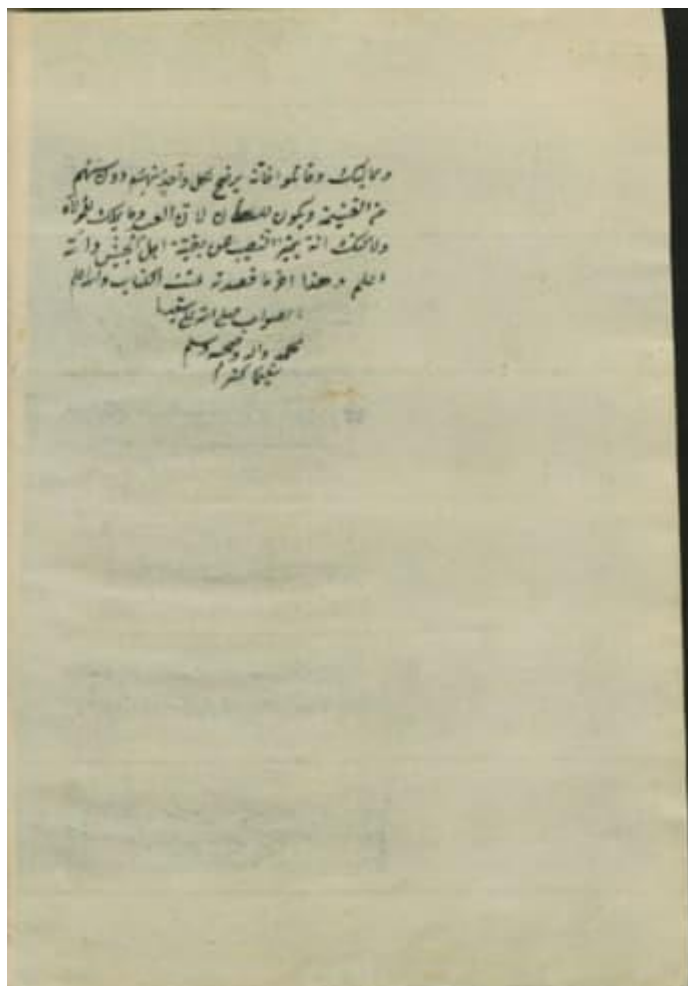 ومماليك وقاتلوا فانه يرضخ لكل واحد منهم دون سهم
من الغنيمة ويكون للسلطان لان العبد وما يملك لمولاه
ولا شك انه يتميز النصيب عن بقية اهل الجيش والله
اعلم وهذا اخر ما قصدته الكتاب والله اعلم
بالصواب صلى الله على سيدنا
محمد واله وصحبه وسلم
تسليما كثيرا